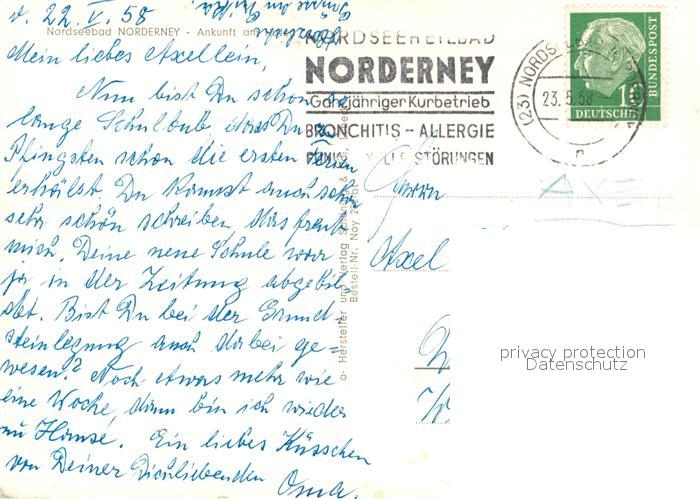 d. 22.V.58
Nordseebad NORDERNEY - Ankunft am
Mein liebes Axellein,
Nun bist Du schon so
lange Schulbub, dass Du
Pfingsten schon die ersten Ferien
erhälst. Du kannst auch schon
sehr schön schreiben, das freut
mich. Deine neue Schule war
ja in der Zeitung abgebil-
det. Bist Du bei der Grund-
steinlegung auch dabei ge-
wesen? Noch etwas mehr wie
eine Woche, dann bin ich wieder
zu Hause. Ein liebes Küsschen
von Deiner Dichliebenden
Oma.
NORDSEEHEILBAD
NORDERNEY
Ganzjähriger Kurbetrieb
BRONCHITIS - ALLERGIE
STÖRUNGEN
(23) NORDS
23.5.58
n
10
DEUTSCHE
BUNDESPOST
Hersteller und Verlag Schöning &
Bestell-Nr. Noy
AXEL
Herrn
Axel
privacy protection
Datenschutz